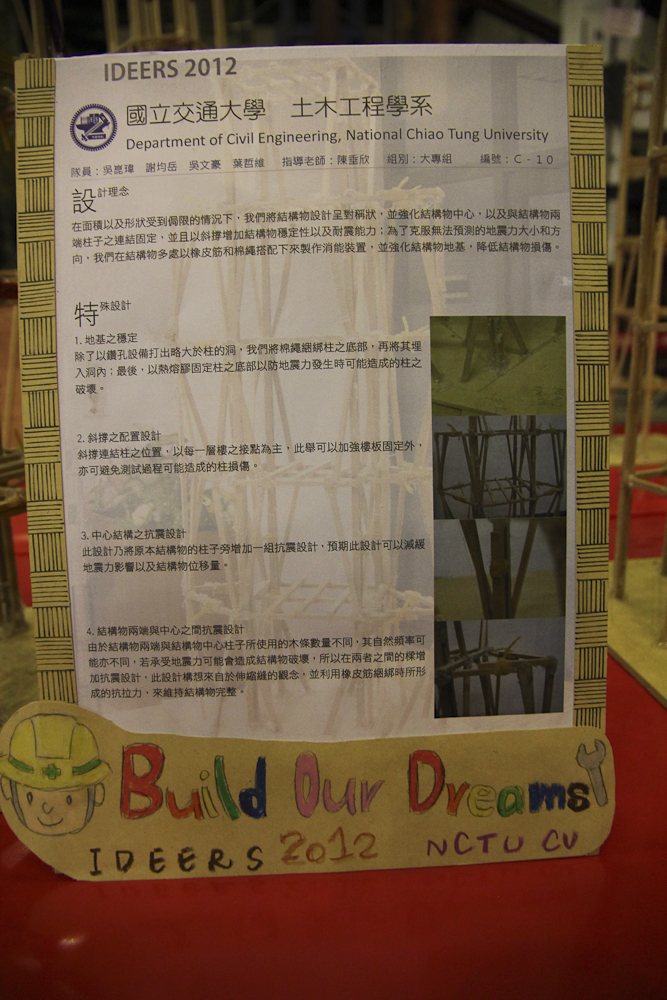 IDEERS 2012
國立交通大學 土木工程學系
Department of Civil Engineering, National Chiao Tung University
隊員：吳崑瑋 謝均岳 吳文豪 葉哲維 指導老師：陳垂欣 組別：大專組 編號：C-10
設計理念
在面積以及形狀受到侷限的情況下，我們將結構物設計呈對稱狀，並強化結構物中心，以及與結構物兩
端柱子之連結固定，並且以斜撐增加結構物穩定性以及耐震能力；為了克服無法預測的地震力大小和方
向，我們在結構物多處以橡皮筋和棉繩搭配下來製作消能裝置，並強化結構物地基，降低結構物損傷。
特殊設計
1. 地基之穩定
除了以鑽孔設備打出略大於柱的洞，我們將棉繩綑綁柱之底部，再將其埋
入洞內；最後，以熱熔膠固定柱之底部以防地震力發生時可能造成的柱之
破壞。
2. 斜撐之配置設計
斜撐連結柱之位置，以每一層樓之接點為主，此舉可以加強樓板固定外，
亦可避免測試過程可能造成的柱損傷。
3. 中心結構之抗震設計
此設計乃將原本結構物的柱子旁增加一組抗震設計，預期此設計可以減緩
地震力影響以及結構物位移量。
4. 結構物兩端與中心之間抗震設計
由於結構物兩端與結構物中心柱子所使用的木條數量不同，其自然頻率可
能亦不同，若承受地震力可能會造成結構物破壞，所以在兩者之間的樑增
加抗震設計，此設計構想來自於伸縮縫的觀念，並利用橡皮筋綑綁時所形
成的抗拉力，來維持結構物完整。
Build Our Dreams
IDEERS 2012 NCTU CV